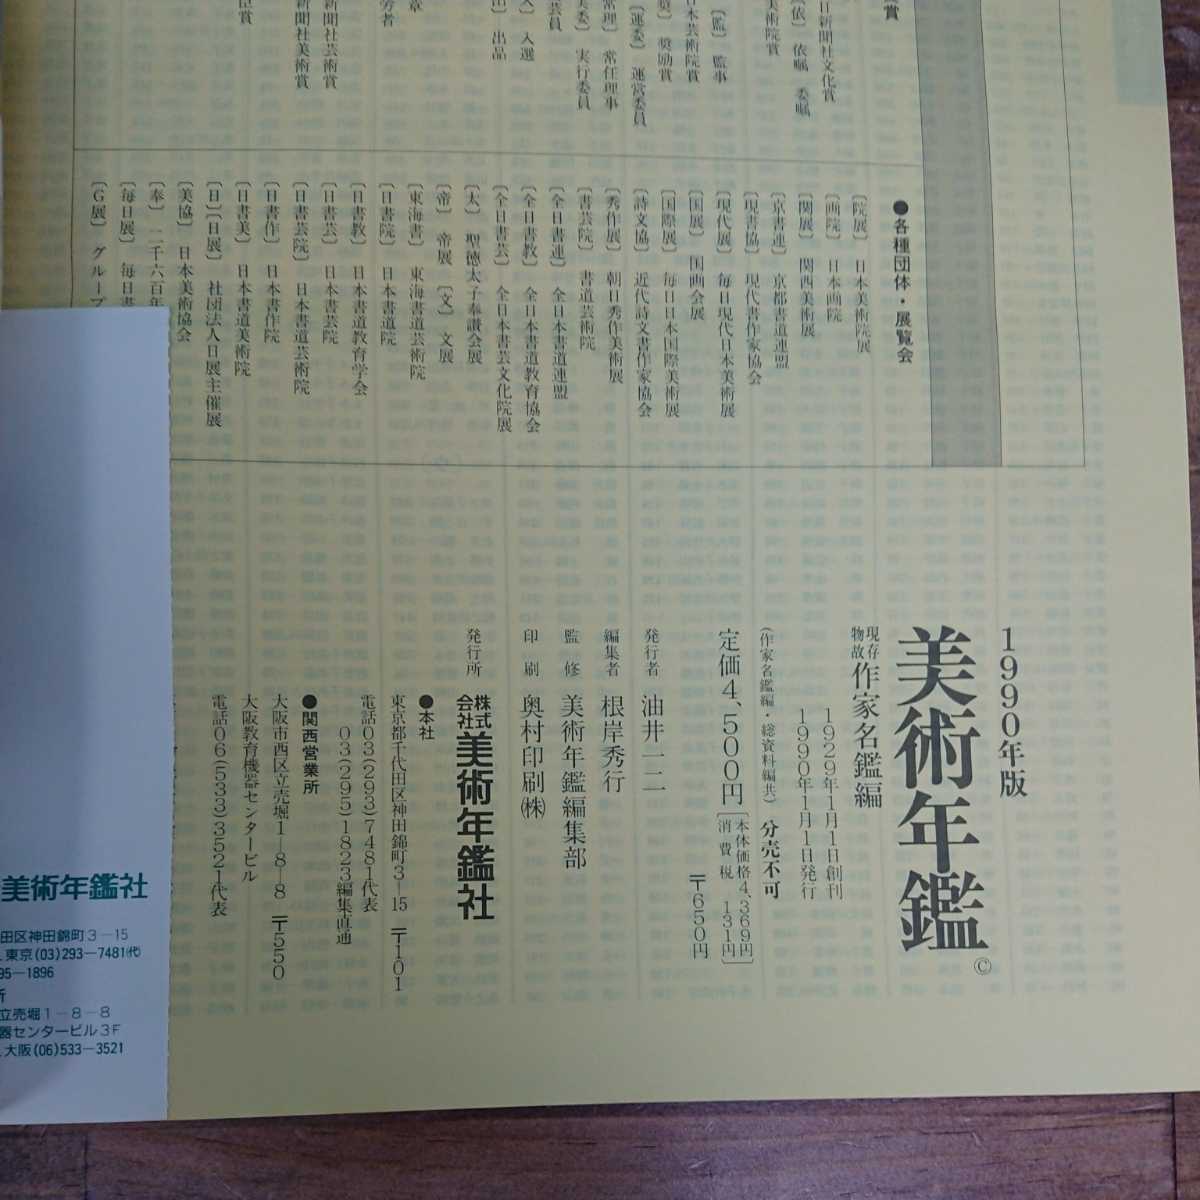 日新聞社文化賞
〔依〕 依嘱 委嘱
美術院賞
〔監〕 監事
日本芸術院賞
〔奨〕 奨励賞
〔運委〕 運営委員
常理〕 常任理事
美委〕 実行委員
入選
出品
新聞社芸術賞
新聞社美術賞
●各種団体・展覧会
〔院展〕 日本美術院展
〔画院〕 日本画院
〔関展〕 関西美術展
〔京書連〕 京都書道連盟
〔現書協〕 現代書作家協会
〔現代展〕 毎日現代日本美術展
〔国展〕 国画会展
〔国際展〕 毎日日本国際美術展
〔詩文協〕 近代詩文書作家協会
〔秀作展〕 朝日秀作美術展
〔書芸院〕 書道芸術院
〔全日書連〕 全日本書道連盟
〔全日書教〕 全日本書道教育協会
〔全日書芸〕 全日本書芸文化院展
〔太〕 聖徳太子奉讃会展
〔帝〕 帝展 〔文〕 文展
〔東海書〕 東海書道芸術院
〔日書院〕 日本書道院
〔日書教〕 日本書道教育学会
〔日書芸〕 日本書芸院
〔日書芸院〕 日本書道芸術院
〔日書作〕 日本書作院
〔日書美〕 日本書道美術院
〔日〕〔日展〕 社団法人日展主催展
〔美協〕 日本美術協会
〔奉〕 二千六百年
〔毎日展〕 毎日書
〔G展〕 グループ
1990年版
美術年鑑 ©
現存
物故 作家名鑑編
1929年1月1日創刊
1990年1月1日発行
(作家名鑑編・総資料編共) 分売不可
定価4、500円 〔本体価格4、369円
消費税 131円〕
〒650円
発行者 油井一二
編集者 根岸秀行
監修 美術年鑑編集部
印刷 奥村印刷㈱
発行所 株式会社美術年鑑社
●本社
東京都千代田区神田錦町3—15 〒101
電話03(293)7481代表
03(295)1823編集直通
●関西営業所
大阪市西区立売堀1—8—8 〒550
大阪教育機器センタービル
電話06(533)3521代表
美術年鑑社
田区神田錦町3—15
東京(03)293—7481(代)
95—1896
所
立売堀1—8—8
器センタービル3F
大阪(06)533—3521